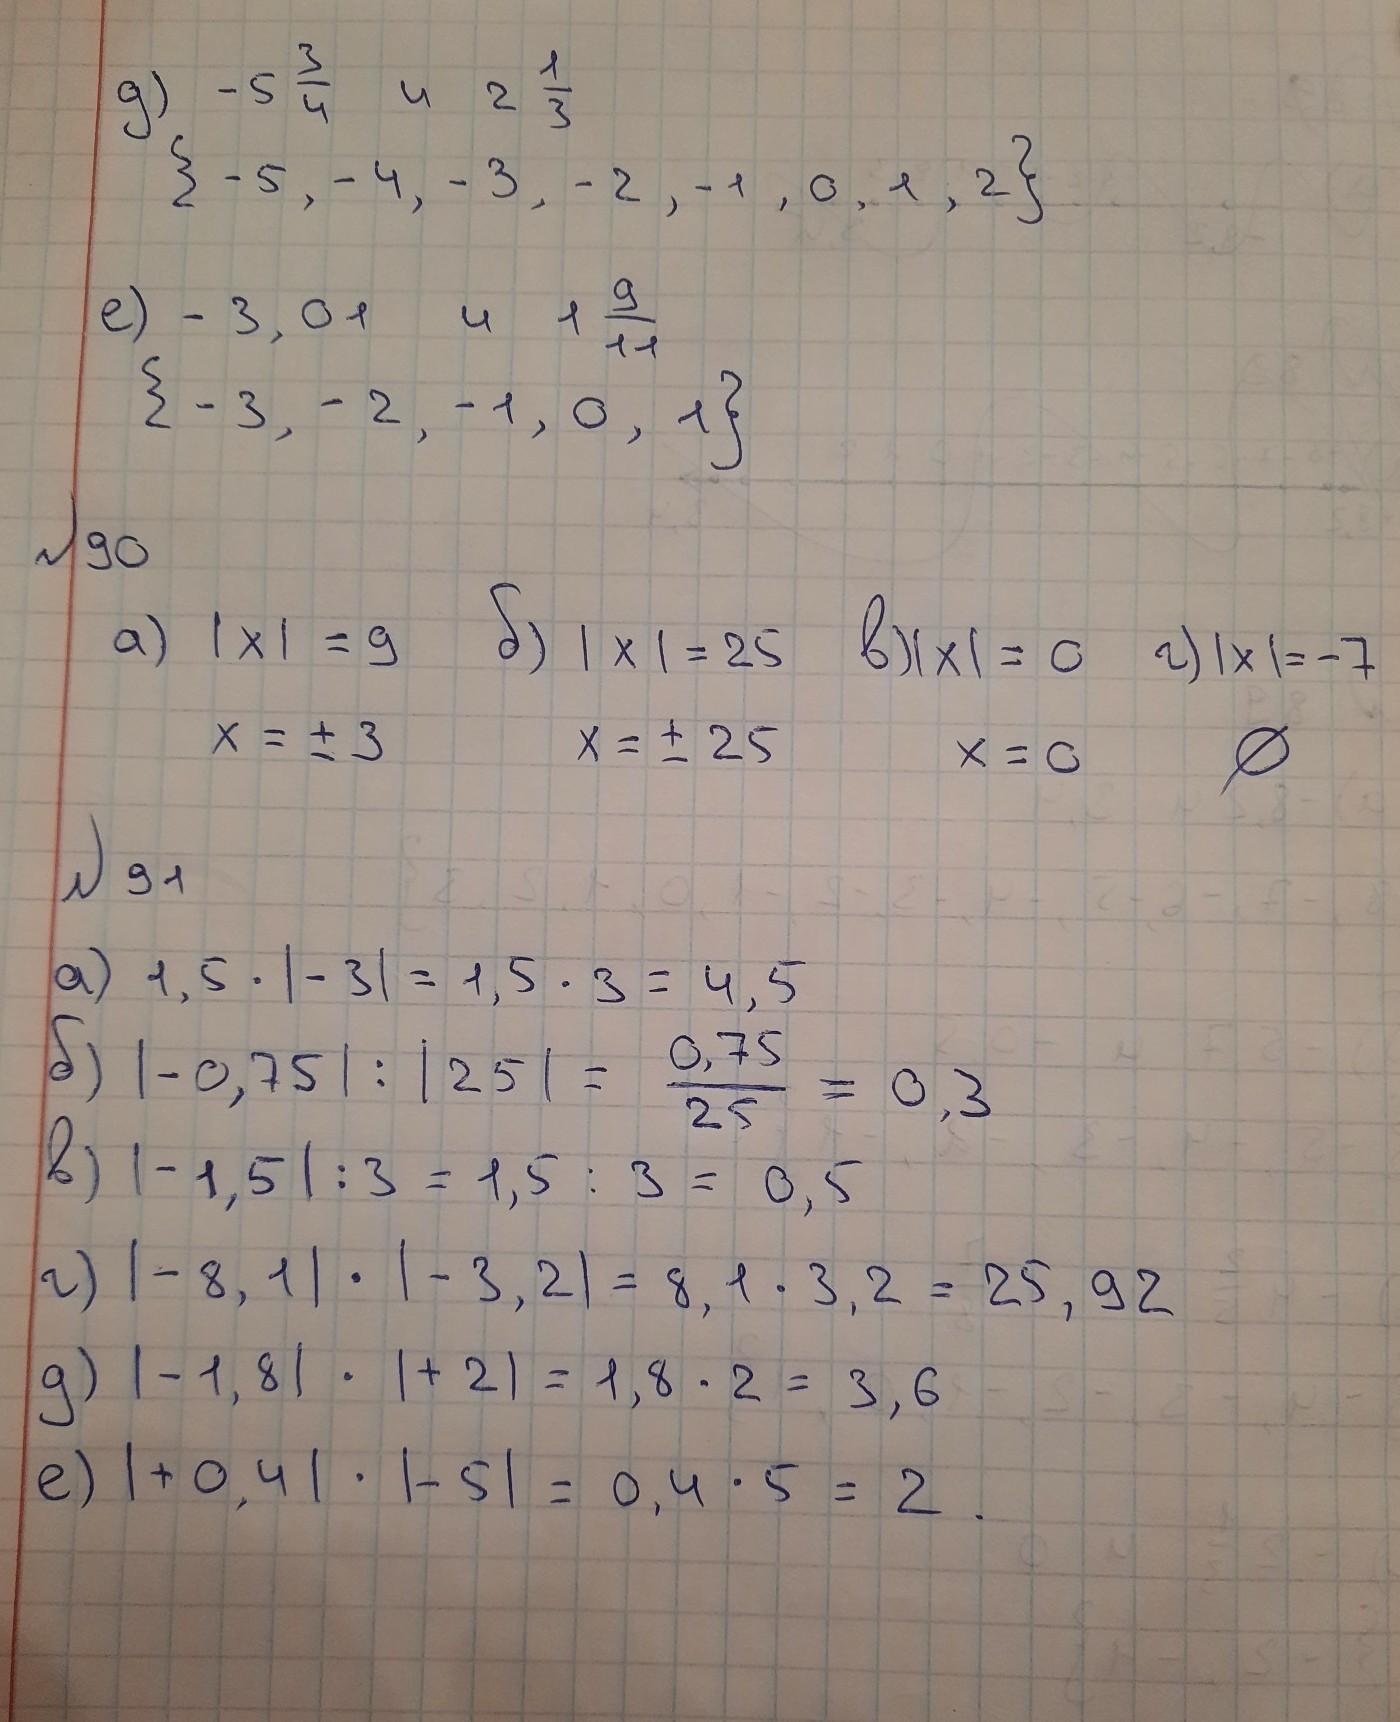 д) -5 3/4 и 2 1/3
{-5, -4, -3, -2, -1, 0, 1, 2}
е) -3,01 и 1 9/11
{-3, -2, -1, 0, 1}
№90
а) |x| = 9 б) |x| = 25 в) |x| = 0 г) |x| = -7
x = ± 3 x = ± 25 x = 0 ∅
№ 91
а) 1,5 · |-3| = 1,5 · 3 = 4,5
б) |-0,75| : |25| = 0,75/25 = 0,3
в) |-1,5| : 3 = 1,5 : 3 = 0,5
г) |-8,1| · |-3,2| = 8,1 · 3,2 = 25,92
д) |-1,8| · |+2| = 1,8 · 2 = 3,6
е) |+0,4| · |-5| = 0,4 · 5 = 2.